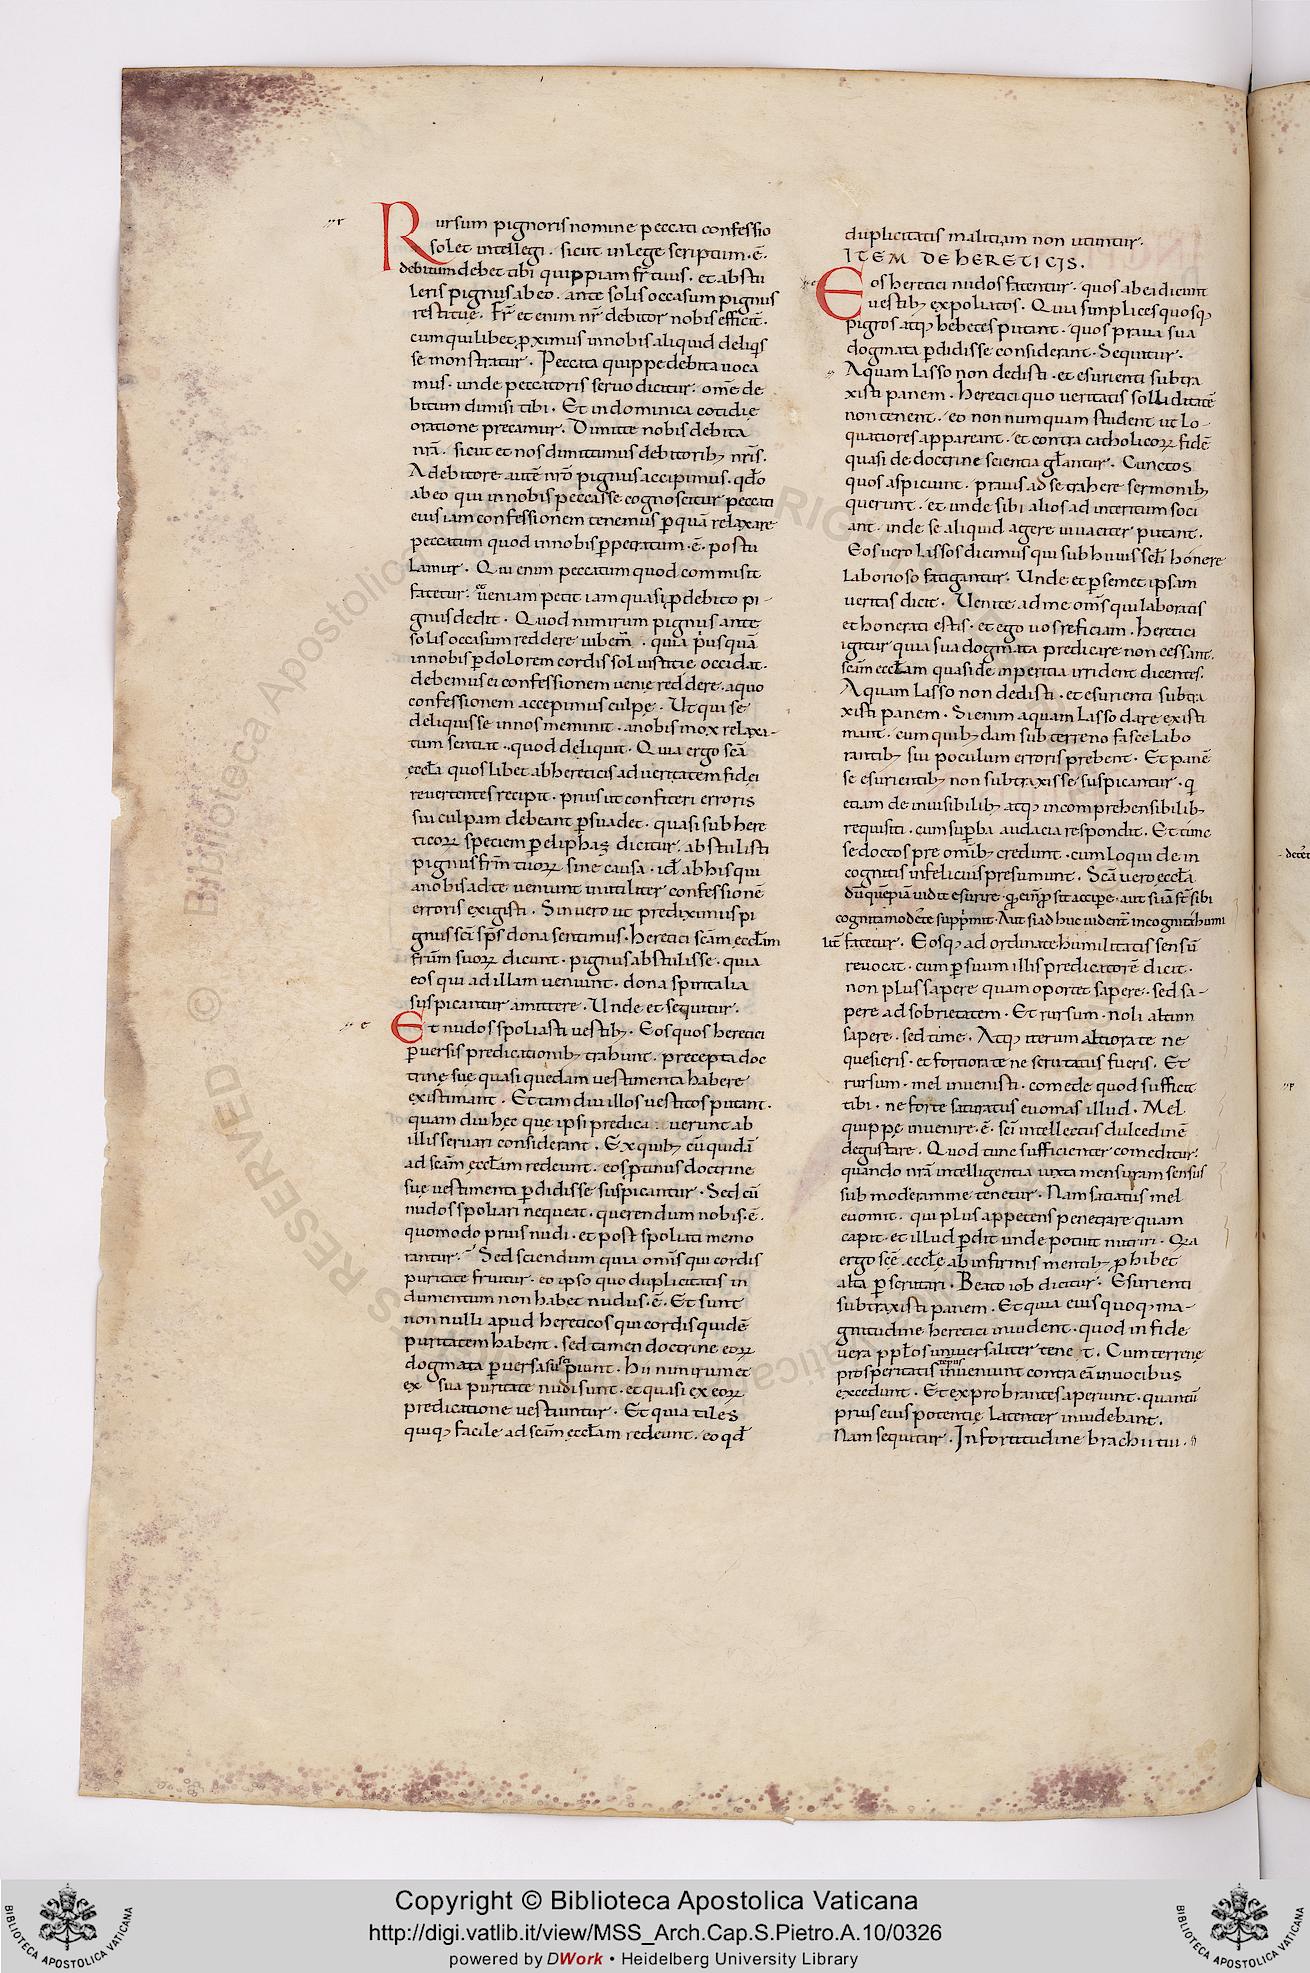 Rursum pignoris nomine peccati confessio
solet intellegi. sicut in lege scriptum. ē.
debitum debet tibi quippiam fr̄ tuus. et abstu
leris pignus ab eo. ante solis occasum pignus
restitue. Fr̄ et enim nr̄ debitor nobis efficit̄.
cum quilibet p̱ximus in nobis aliquid deliq̄s
se monstratur. Peccata quippe debita uoca
mus. unde peccatoris seruo dicitur. om̄e de
bitum dimisi tibi. Et in dominica cotidię
oratione precamur. Dimitte nobis debita
nr̄a. sicut et nos dimittimus debitorib; nr̄is.
A debitore autē nr̄o pignus accipimus. qd̄o
ab eo qui in nobis peccasse cognoscitur peccati
eius iam confessionem tenemus p̱ quā relaxare
peccatum quod in nobis p̱petratum. ē. postu
lamur. Qui enim peccatum quod commisit
fatetur. et ueniam petit iam quasi p̱ debito pi-
gnus dedit. Quod nimirum pignus ante
solis occasum reddere iubem̄. quia p̄usquā
in nobis p̱ dolorem cordis sol iustitie occidat.
debemus ei confessionem uenie reddere. a quo
confessionem accepimus culpę. Ut qui se
deliquisse in nos meminit. a nobis mox relaxa-
tum sentiat. quod deliquit. Quia ergo sc̄a
eccl̄a quoslibet ab hereticis ad ueritatem fidei
reuertentes recipit. prius ut confiteri erroris
sui culpam debeant p̱suadet. quasi sub here
ticoꝝ speciem p̱ eliphaz dicitur. abstulisti
pignus fr̄m tuoꝝ sine causa. id̄ ab his qui
a nobis ad te ueniunt inutiliter confessionē
erroris exigisti. Sin uero ut prediximus pi
gnus sc̄i sp̄s dona sentimus. heretici sc̄am eccl̄am
fr̄um suoꝝ dicunt. pignus abstulisse. quia
eos qui ad illam ueniunt. dona spiritalia
suspicantur amittere. Unde et sequitur.
Et nudos spoliasti uestib;. Eos quos heretici
p̱uersis predicationib; trahunt. precepta doc
trinę sue quasi quedam uestimenta habere
existimant. Et tam diu illos uestitos putant.
quam diu hęc que ipsi predica uerunt ab
illis seruari considerant. Ex quib; cū quidā
ad sc̄am eccl̄am redeunt. eos p̱tinus doctrine
sue uestimenta p̱didisse suspicantur. Sed cū
nudos spoliari nequeat. querendum nobis. ē.
quomodo prius nudi. et post spoliati memo
rantur. Sed sciendum quia om̄is qui cordis
puritate fruitur. eo ipso quo duplicitatis in
dumentum non habet nudus. ē. Et sunt
non nulli apud hereticos qui cordis quidē
puritatem habent. sed tamen doctrine eoꝝ
dogmata p̱uersa suscipiunt. hii nimirum et
ex sua puritate nudi sunt. et quasi ex eoꝝ
predicatione uestiuntur. Et quia tales
quiq; facile ad sc̄am eccl̄am redeunt. eo qd̄
duplicitatis malitiam non utuntur.
ITEM DE HERETICIS.
Eos heretici nudos fatentur. quos ab ei dicunt
uestib; expoliatos. Quia simplices quosq;
pigros atq; hebetes putant. quos praua sua
dogmata p̱didisse considerant. Sequitur.
Aquam lasso non dedisti. et esurienti subtra
xisti panem. heretici quo ueritatis solliditatē
non tenent. eo non numquam student ut lo-
quatiores appareant. et contra catholicoꝝ fidē
quasi de doctrine scientia gl̄antur. Cunctos
quos aspiciunt. prauis ad se trahere sermonib;
querunt. et unde sibi alios ad interitum soci
ant. inde se aliquid agere uiuaciter putant.
Eos uero lassos dicimus qui sub huius scl̄i honere
laborioso fatigantur. Unde et p̱ semet ipsam
ueritas dicit. Uenite ad me om̄s qui laboratis
et honerati estis. et ego uos reficiam. heretici
igitur quia sua dogmata predicare non cessant.
sc̄am eccl̄am quasi de inperitia irrident dicentes.
Aquam lasso non dedisti. et esurienti subtra
xisti panem. Si enim aquam lasso dare existi
mant. cum quib;dam sub terreno fasce labo
rantib; sui poculum erroris prebent. Et panē
se esurientib; non subtraxisse suspicantur. q
etiam de inuisibilib; atq; incomprehensibilib;
requisiti. cum sup̱ba audacia respondit. Et tunc
se doctos pre omīb; credunt. cum loqui de in
cognitis infelicius presumunt. Sc̄a uero eccl̄a
dū quēpiā uidit esurire. sit accip̱e. aut suīa
cognita moderate supp̄mit. Aut si adhuc incognita humi
lit̄ fatetur. Eosq; ad ordinate humilitatis sensū
reuocat. cum p̱ suum illis predicatorē dicit.
non plus sapere quam oportet sapere. sed sa-
pere ad sobrietatem. Et rursum. noli altum
sapere. sed time. Atq; iterum altiora te ne
quesieris. et fortiora te ne scrutatus fueris. Et
rursum. mel inuenisti. comede quod sufficit
tibi. ne forte saturatus euomas illud. Mel
quippe inuenire. ē. sc̄i intellectus dulcedinē
degustare. Quod tunc sufficienter comeditur.
quando nr̄a intelligentia iuxta mensuram sensus
sub moderamine tenetur. Nam satiatus mel
euomit. qui plus appetens penetrare quam
capit. et illud p̱dit unde potuit nutriri. Q̄a
ergo sc̄ę eccl̄ę ab infirmis mentib; p̱hibet
alta p̱scrutari. Beato iob dicitur. Esurienti
subtraxisti panem. Et quia eius quoq; ma-
gnitudine heretici inuident. quod in fide
uera pp̄los uniuersaliter tene t. Cum terrenę
prosperitatis tempus inueniunt contra eā in uocibus
excedunt. Et exprobrantes aperiunt. quantū
prius eius potentię latenter inuidebant.
Nam sequitur. In fortitudine brachii tui.
© Biblioteca Apostolica Vaticana
RIGHTS RESERVED
Copyright © Biblioteca Apostolica Vaticana
http://digi.vatlib.it/view/MSS_Arch.Cap.S.Pietro.A.10/0326
powered by DWork • Heidelberg University Library
BIBLIOTECA APOSTOLICA VATICANA
BIBLIOTECA APOSTOLICA VATICANA